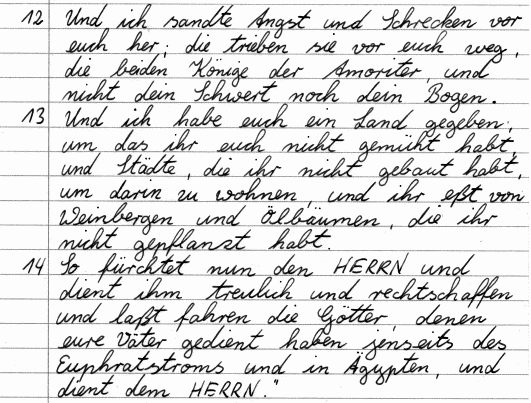 12 Und ich sandte Angst und Schrecken vor
euch her; die trieben sie vor euch weg,
die beiden Könige der Amoriter, und
nicht dein Schwert noch dein Bogen.
13 Und ich habe euch ein Land gegeben,
um das ihr euch nicht gemüht habt,
und Städte, die ihr nicht gebaut habt,
um darin zu wohnen, und ihr eßt von
Weinbergen und Ölbäumen, die ihr
nicht gepflanzt habt.
14 So fürchtet nun den HERRN und
dient ihm treulich und rechtschaffen
und laßt fahren die Götter, denen
eure Väter gedient haben jenseits des
Euphratstroms und in Ägypten, und
dient dem HERRN."